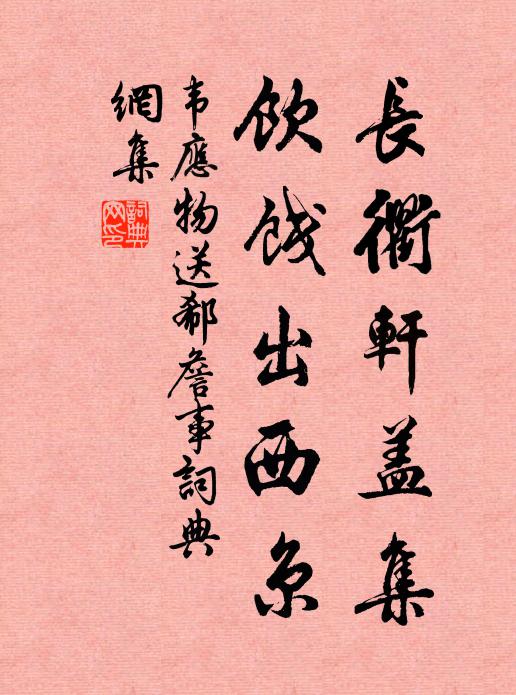 長衢軒蓋集
飲餞出西京
韦應物送郗詹事詞典
網集
詞典網印